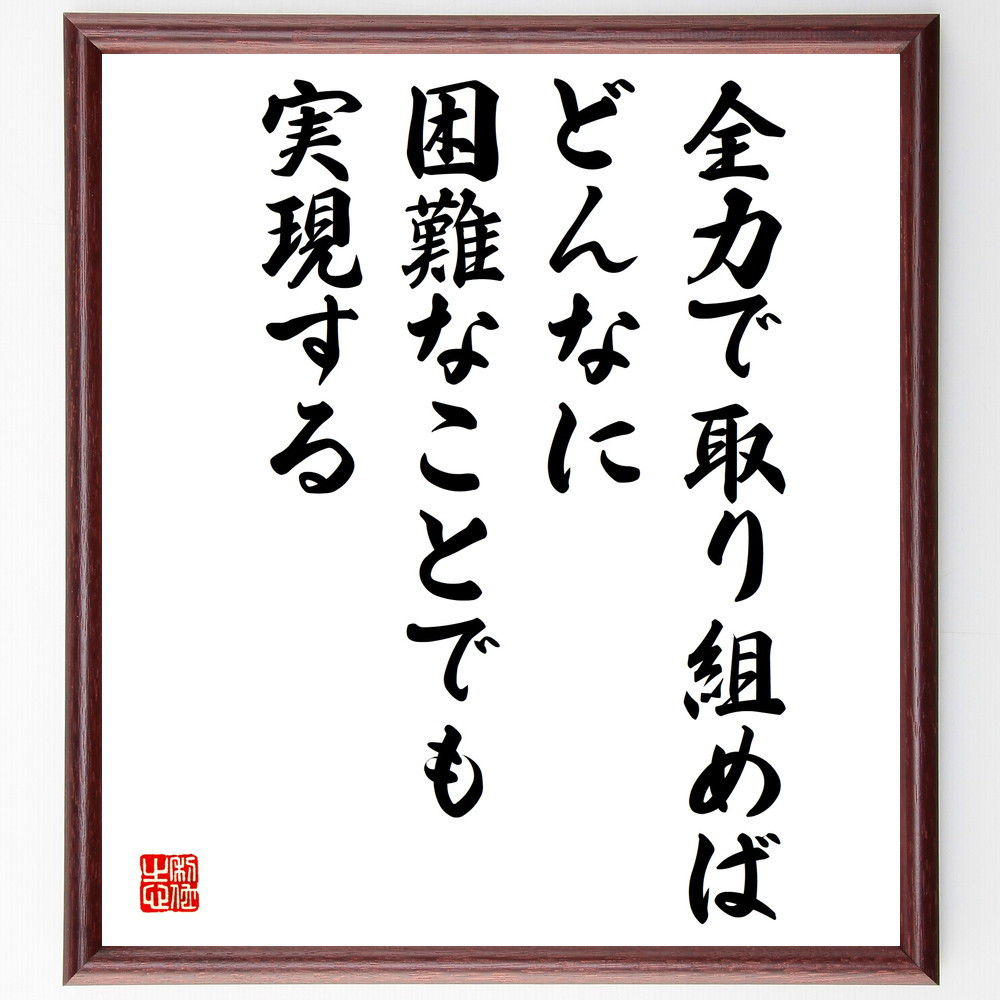 全力で取り組めば
どんなに
困難なことでも
実現する